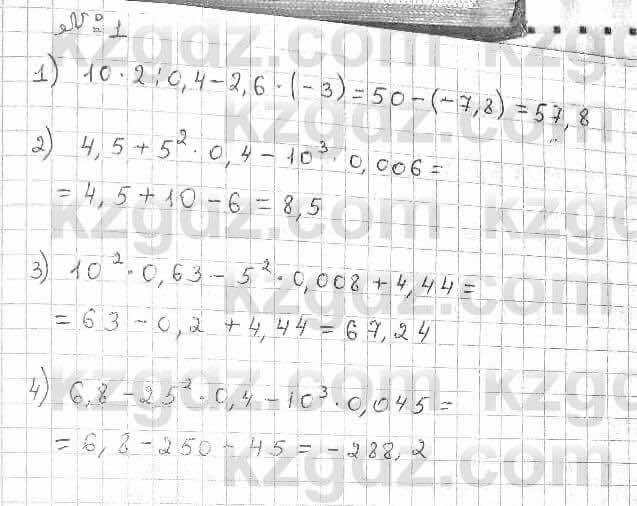 № 1
1) 10 · 2 : 0,4 - 2,6 · (-3) = 50 - (-7,8) = 57,8
2) 4,5 + 5² · 0,4 - 10³ · 0,006 =
= 4,5 + 10 - 6 = 8,5
3) 10² · 0,63 - 5² · 0,008 + 4,44 =
= 63 - 0,2 + 4,44 = 67,24
4) 6,8 - 25² · 0,4 - 10³ · 0,045 =
= 6,8 - 250 - 45 = -288,2
kzgdz.com
kzgdz.com
kzgdz.com
kzgdz.com
kzgdz.com
kzgdz.com